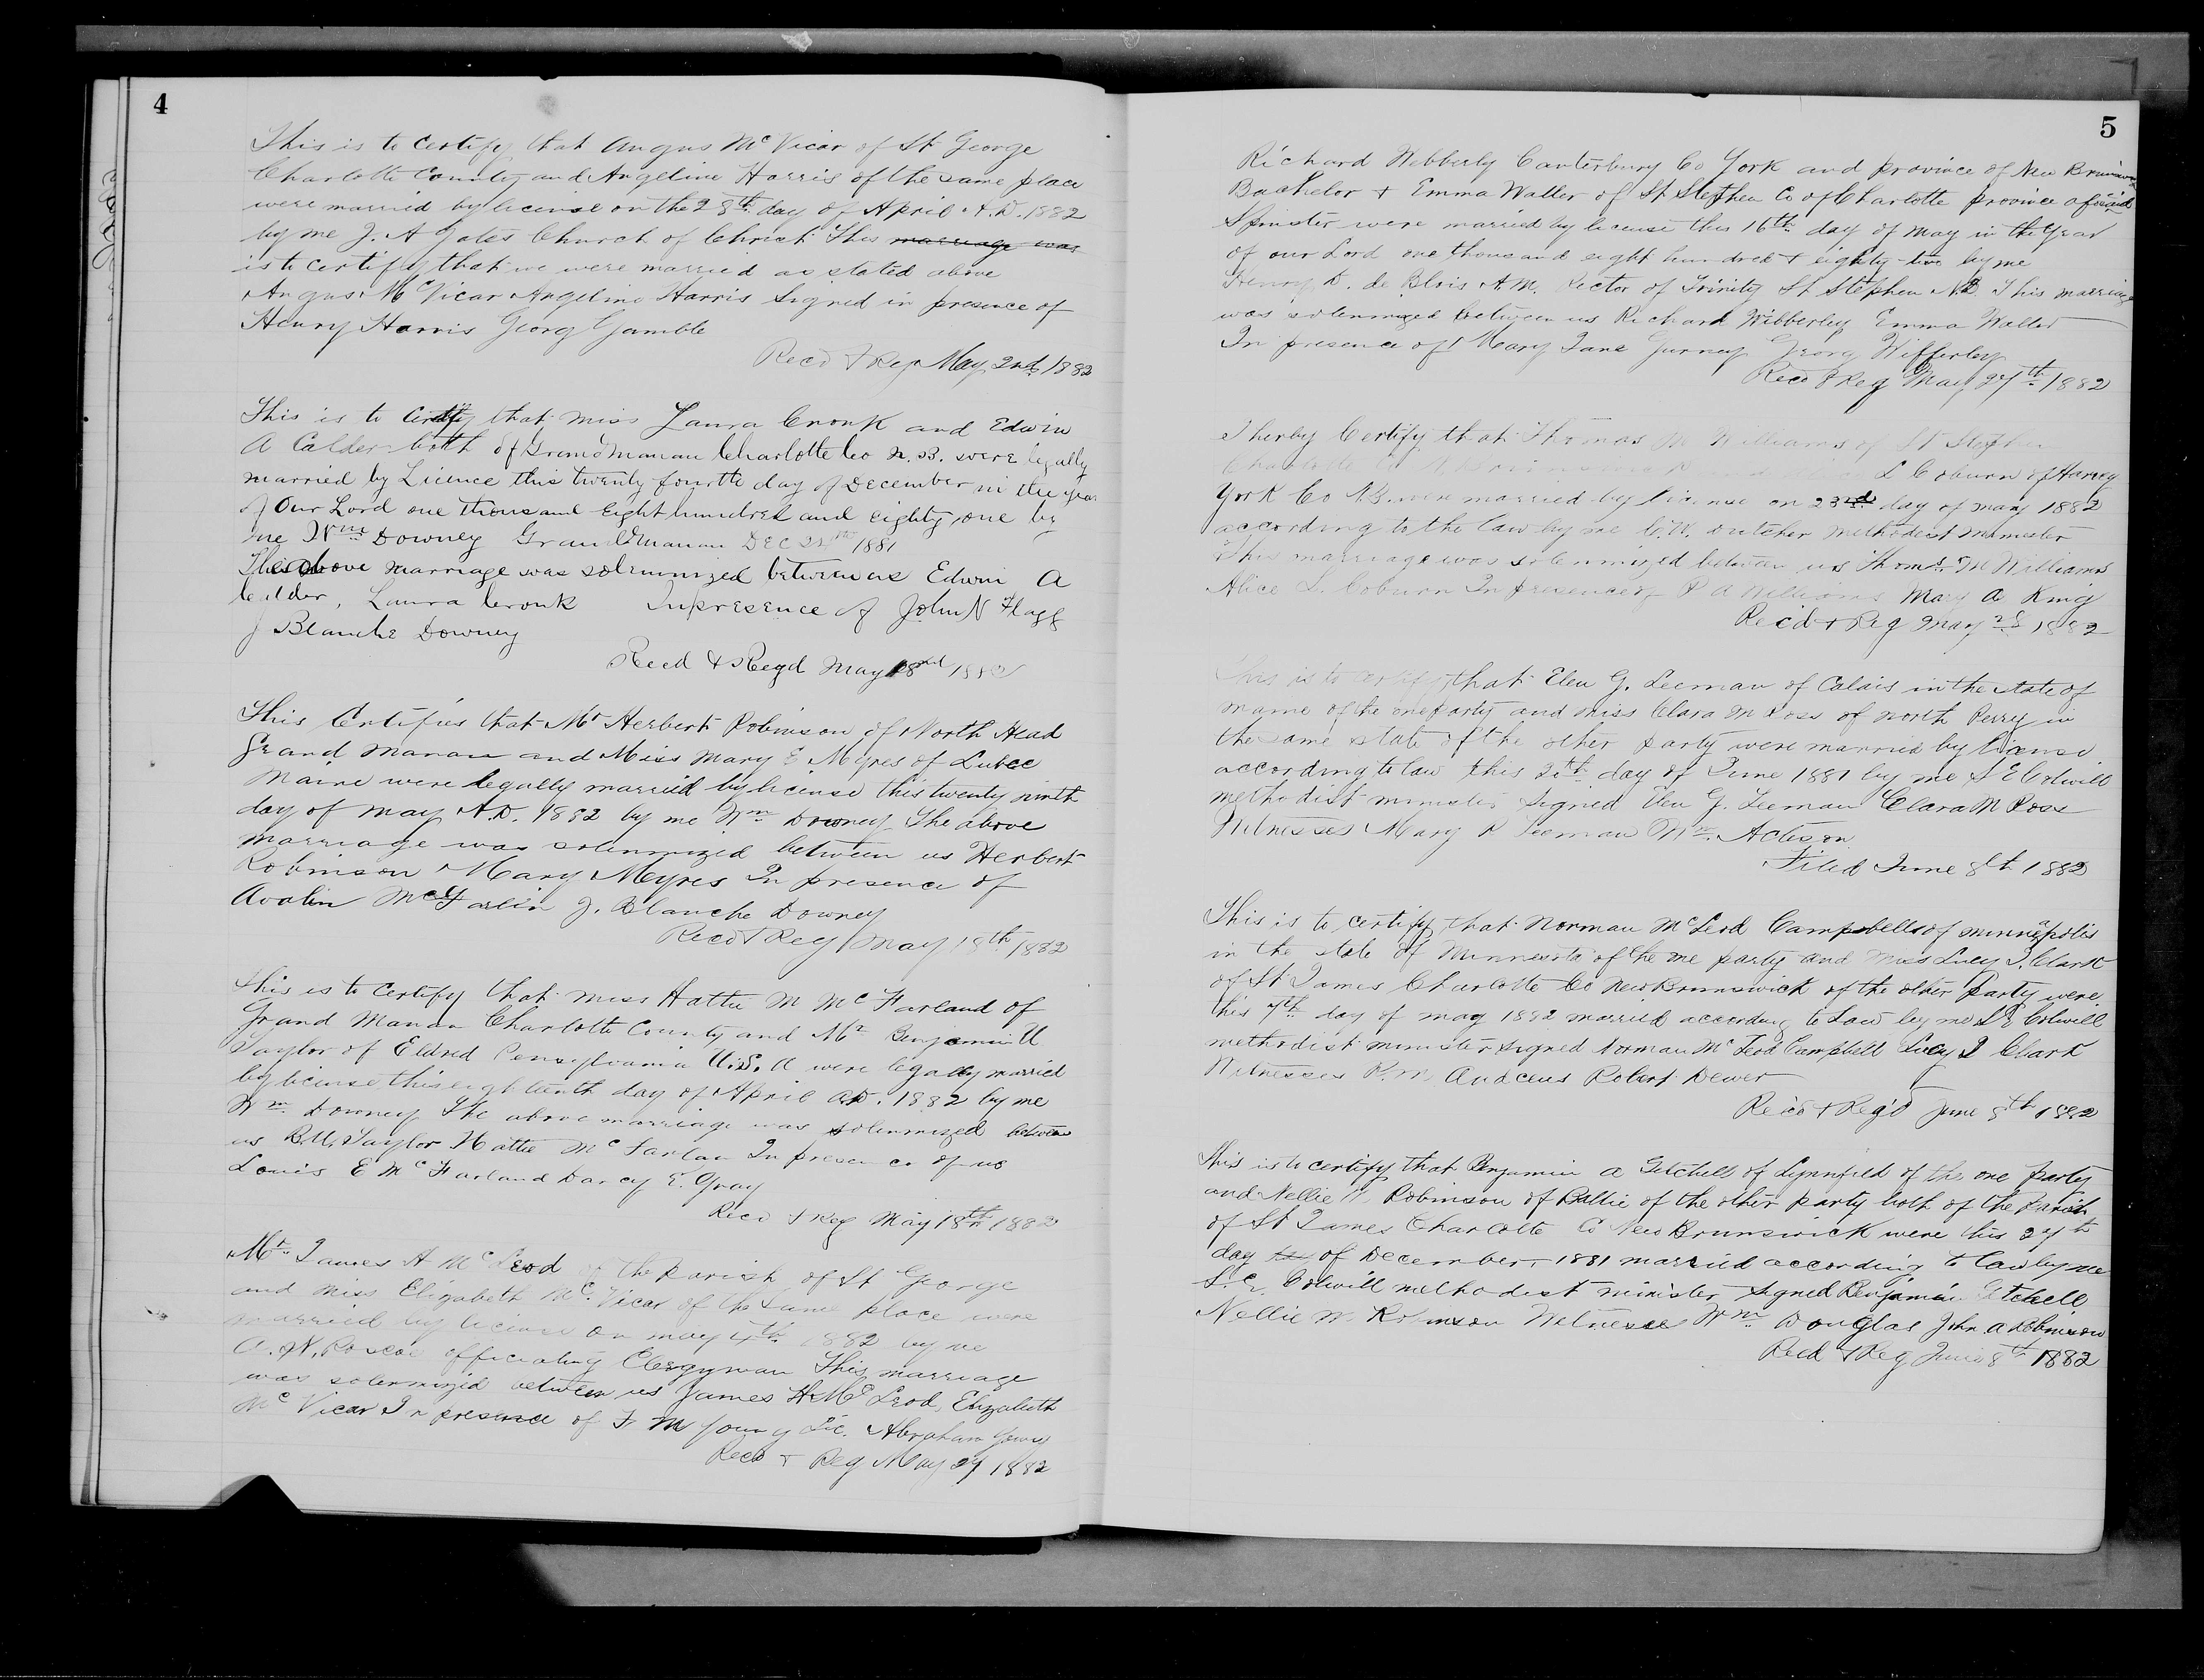 4
This is to Certify that Angus Mc Vicar of St George
Charlotte County and Angeline Harris of the same place
were married by license on the 28th day of April A.D. 1882
by me J. A Gates Church of Christ This marriage was
is to certify that we were married as stated above
Angus Mc Vicar Angeline Harris Signed in presence of
Henry Harris Georg Gamble
Recd & Reg May 2nd 1882
This is to Certify that miss Laura Cronk and Edwin
A Calder both of Grand manan Charlotte Co N. B. were legally
married by Licence this twenty fourth day of December in the year
of Our Lord one thousand Eight hundred and eighty one by
me Wm Downey Grand Manan DEC 1881
The above marriage was solemnized between us Edwin A
Calder, Laura Cronk In presence of John N Flagg
J Blanche Downey
Recd & Regd May 1882
This Certifies that Mr Herbert Robinson of North Head
Grand Manan and Miss Mary E Myres of Lubec
Maine were legally married by license this twenty ninth
day of May A.D. 1882 by me Wm Downey The above
marriage was solemnized between us Herbert
Robinson Mary Myres In presence of
Avalin McFarlin J. Blanche Downey
Recd & Reg May 18th 1882
This is to Certify that miss Hattie M McFarland of
Grand Manan Charlotte County and Mr Benjamin U
Taylor of Eldred Pensylvania U.S. A were legally married
by license this eighteenth day of April A.D. 1882 by me
Wm Downey The above marriage was solemnized between
us B.U. Taylor Hattie McFarlan In presence of us
Louis E McFarland Darcy E. Gray
Recd & Reg May 18th 1882
Mr James H McLeod of the Parish of St George
and Miss Elizabeth Mc Vicar of the Same place were
married by license on may 4th 1882 by me
A. W. Roscoe officiating Clergyman This marriage
was solemnized between us James H McLeod, Elizabeth
Mc Vicar In presence of F M Young Lic. Abraham Young
Recd & Reg May 27 1882
5
Richard Wibberly Canterbury Co York and province of New Brunswick
Bachelor & Emma Waller of St Stephen Co of Charlotte province aforesaid
Spinster were married by license this 16th day of May in the Year
of our Lord one thousand eight hundred & eighty-two by me
Henry D. de Blois A.M. Rector of Trinity St Stephen N.B. This marriage
was solemnized between us Richard Wibberley Emma Waller
In presence of Mary Jane Gurney Georg Wifferley
Recd & Reg May 27th 1882
I herby Certify that Thomas M Williams of St Stephen
Charlotte Co L Coburn of Harvey
York Co N.B. were married by license on 23rd day of may 1882
according to the law by me C.W. Dutcher methodist minister
This marriage was solemnized between us Thomas M Williams
Alice L. Coburn In presence of P A Williams Mary A King
Rec'd & Reg May 1882
This is to certify that Eleu G. Leeman of Calais in the state of
maine of the one party and miss Clara M Ross of north Perry in
the same state of the other party were married by license
according to law this 20th day of June 1881 by me S E Colwill
methodist minister Signed Eleu G. Leeman Clara M Ross
Witnesses Mary R Leeman Wm Acteson
Filed June 8th 1882
This is to certify that Norman McLeod Campbells of minneapolis
in the state of Minnesota of the one party and Miss Lucy J. Clark
of St James Charlotte Co New Brunswick of the other Party were
this 7th day of may 1882 married according to Law by me S E Colwill
methodist minister signed Norman McLeod Campbell Lucy J Clark
Witnesses R.M. Andrews Robert Dewer
Rec'd & Reg'd June 8th 1882
This is to certify that Benjamin A Getchell of Lynnfield of the one party
and Nellie W. Robinson of Baltic of the other party both of the Parish
of St James Charlotte Co New Brunswick were this 27th
day of December 1881 married according to law by me
S. E. Colwill methodist minister Signed Benjamin Getchell
Nellie W. Robinson Witnesses Wm Douglas John A Robinson
Recd & Reg June 8th 1882